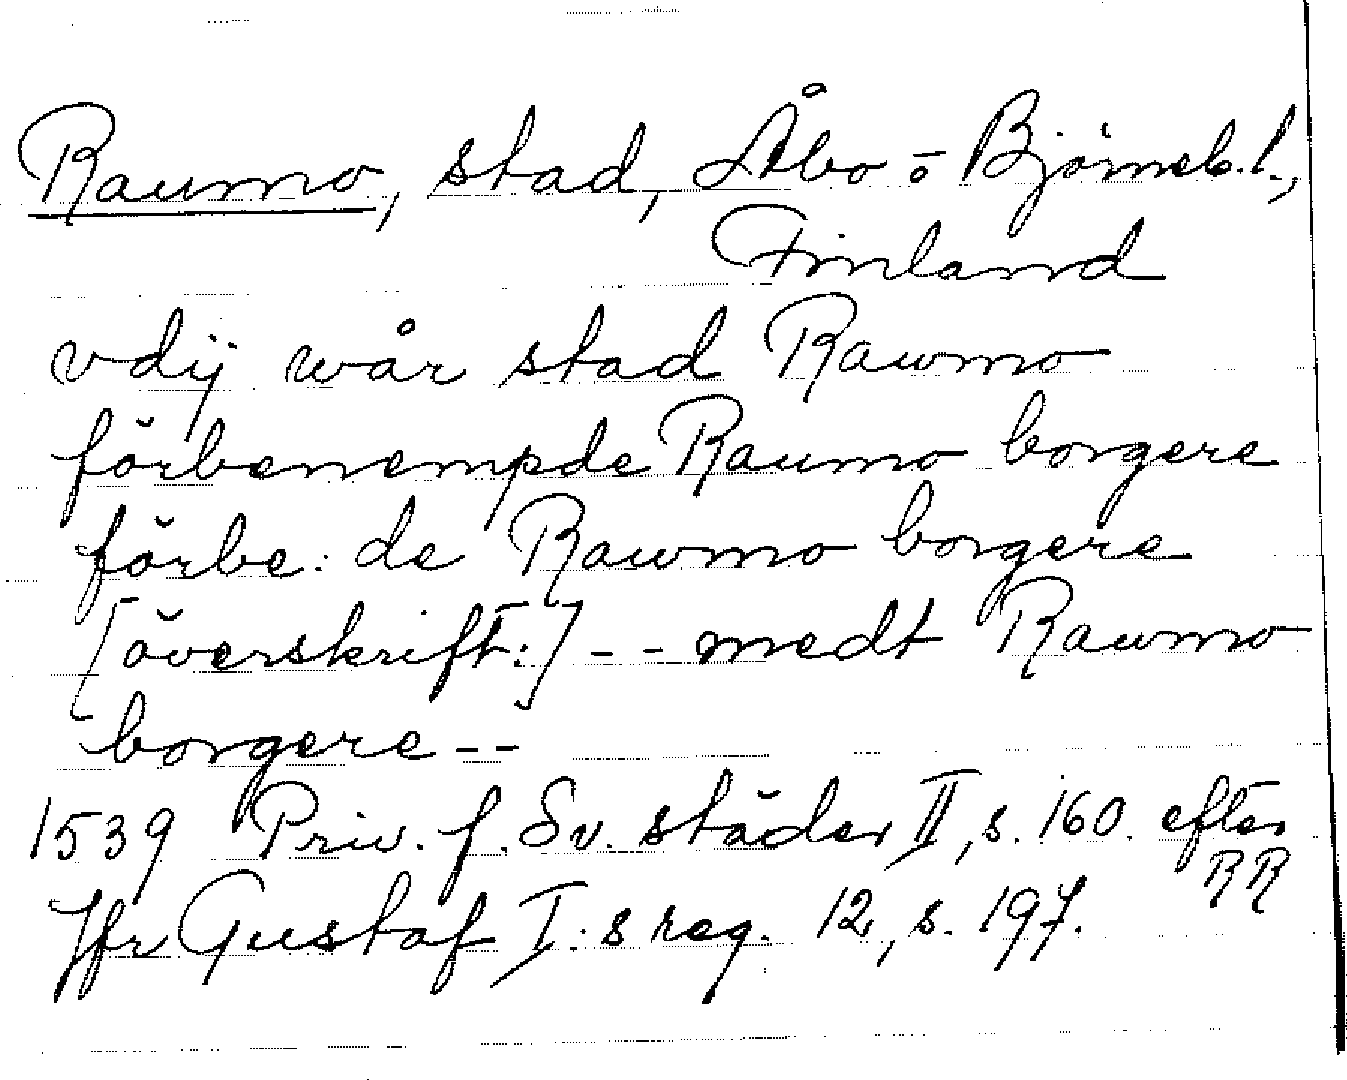 Raumo, stad, Åbo o Björneb. l.,
Finland
vdij wår stad Rawmo
förbenempde Raumo borgere
förbe: de Rawmo borgere
[överskrift:] -- medt Rawmo
borgere --
1539 Priv. f. Sv. städer II, s. 160. efter
RR
Jfr Gustaf I:s reg. 12, s. 197.